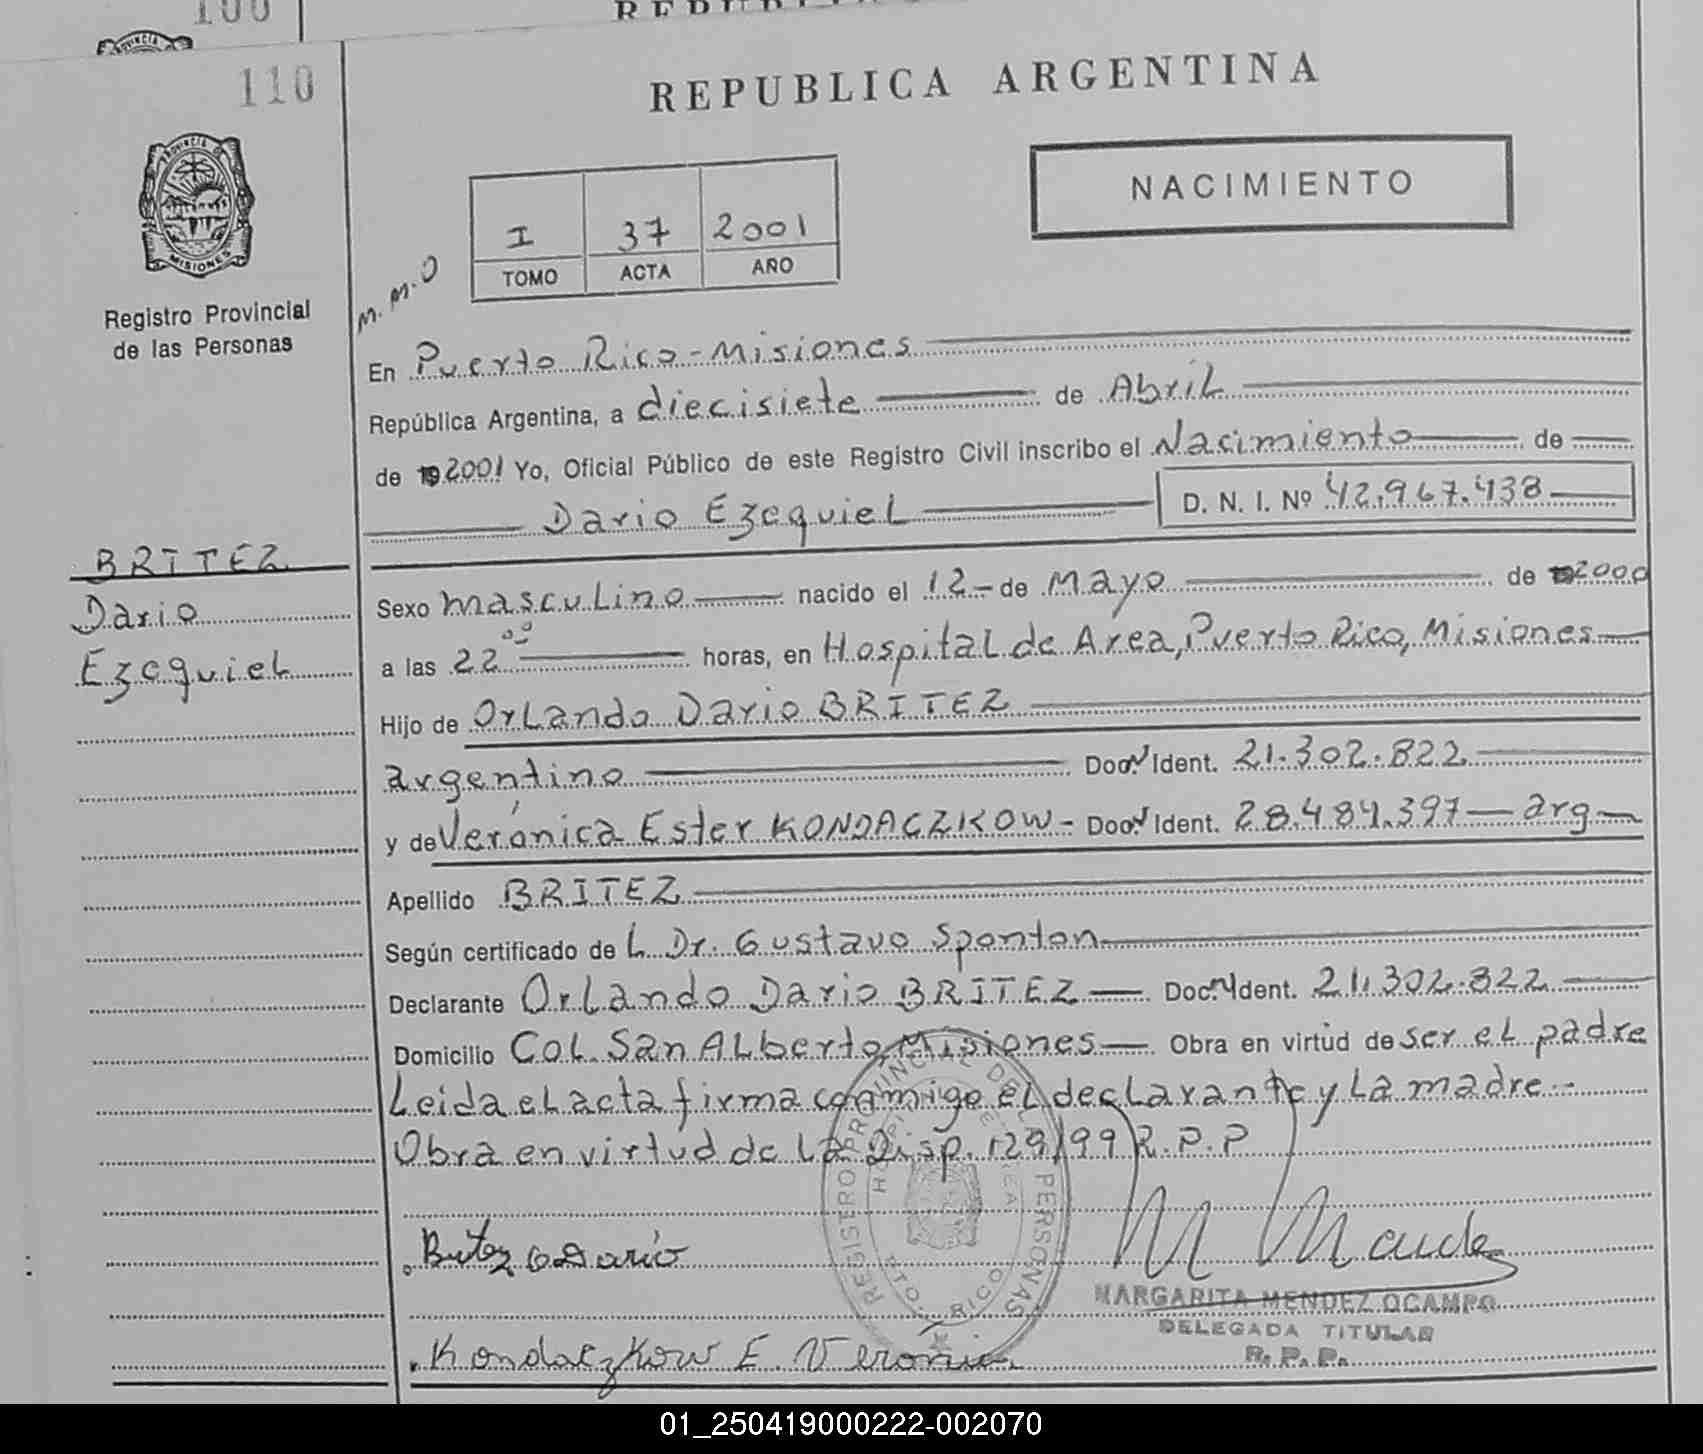 100
REPUBLICA
PROVINCIA
110
REPUBLICA ARGENTINA
PROVINCIA DE
MISIONES
NACIMIENTO
I 37 2001
TOMO ACTA AÑO
Registro Provincial
de las Personas
M.M.O
En Puerto Rico - Misiones
República Argentina, a diecisiete de Abril
de 192001 Yo, Oficial Público de este Registro Civil inscribo el Nacimiento de
Dario Ezequiel D. N. I. Nº 42.967.438
BRITEZ
Dario
Ezequiel
Sexo masculino nacido el 12 - de Mayo de 2000
a las 22 00 horas, en Hospital de Area, Puerto Rico, Misiones
Hijo de Orlando Dario BRITEZ
argentino Doc. Ident. 21.302.822
y de Verónica Ester KONDACZKOW - Doc. Ident. 28.484.397 - arg -
Apellido BRITEZ
Según certificado de L Dr. Gustavo Sponton
Declarante Orlando Dario BRITEZ Doc. Ident. 21.302.822
Domicilio Col. San Alberto, Misiones Obra en virtud de ser el padre
Leida el acta firma conmigo el declarante y la madre -
Obra en virtud de la Disp. 129/99 R.P.P
REGISTRO PROVINCIAL DE PERSONAS
PTO. RICO
Britez O Dario
MARGARITA MENDEZ OCAMPO
DELEGADA TITULAR
R. P. P.
Kondaczkow E. Veronica
01_250419000222-002070